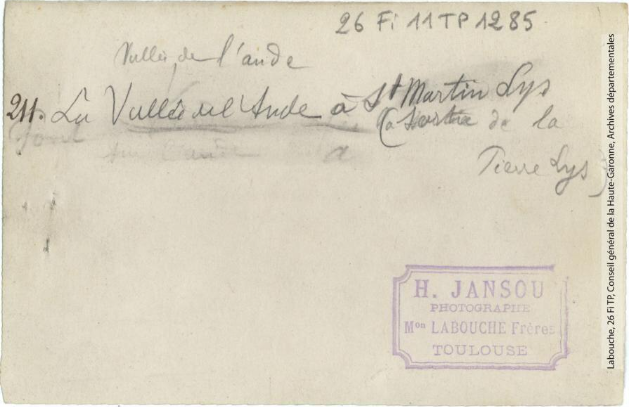 26 Fi 11 TP 1285
Vallée de l'aude
211. La Vallée de l'Aude à St Martin Lys
(a sortie de la
Pierre Lys)
H. JANSOU
PHOTOGRAPHE
Mon LABOUCHE Frères
TOULOUSE
Labouche, 26 Fi TP, Conseil général de la Haute-Garonne, Archives départementales